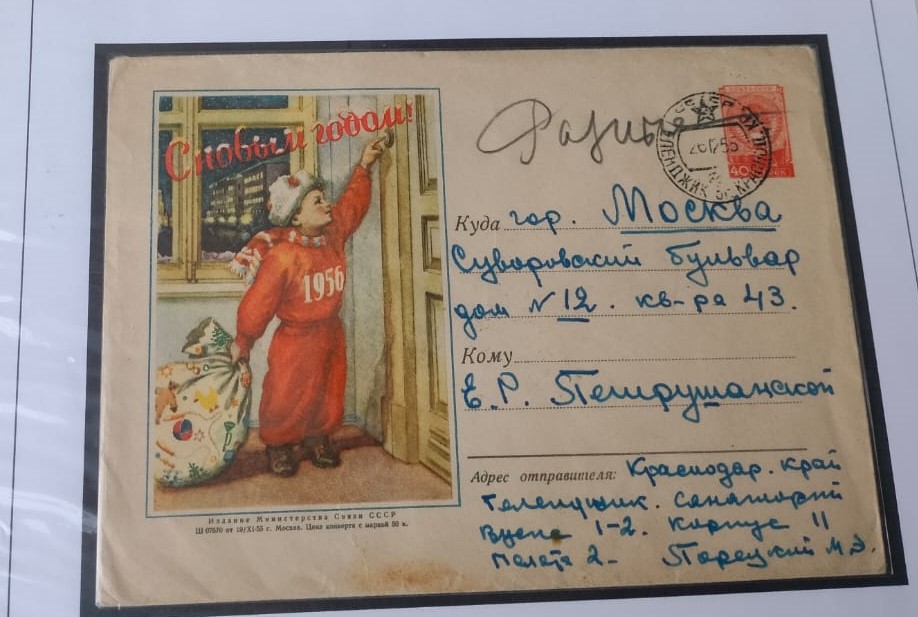 С новым годом!
1956
40
Куда гор. Москва
Суворовский бульвар
дом № 12. кв-ра 43.
Кому
Е. Р.
Адрес отправителя: Краснодар. край
Санаторий
1-2. корпус 11
Палата 2 - Порецкий М. Э.
Издание Министерства Связи СССР
Ш 07670 от 19/XI-55 г. Москва. Цена конверта с маркой 50 к.